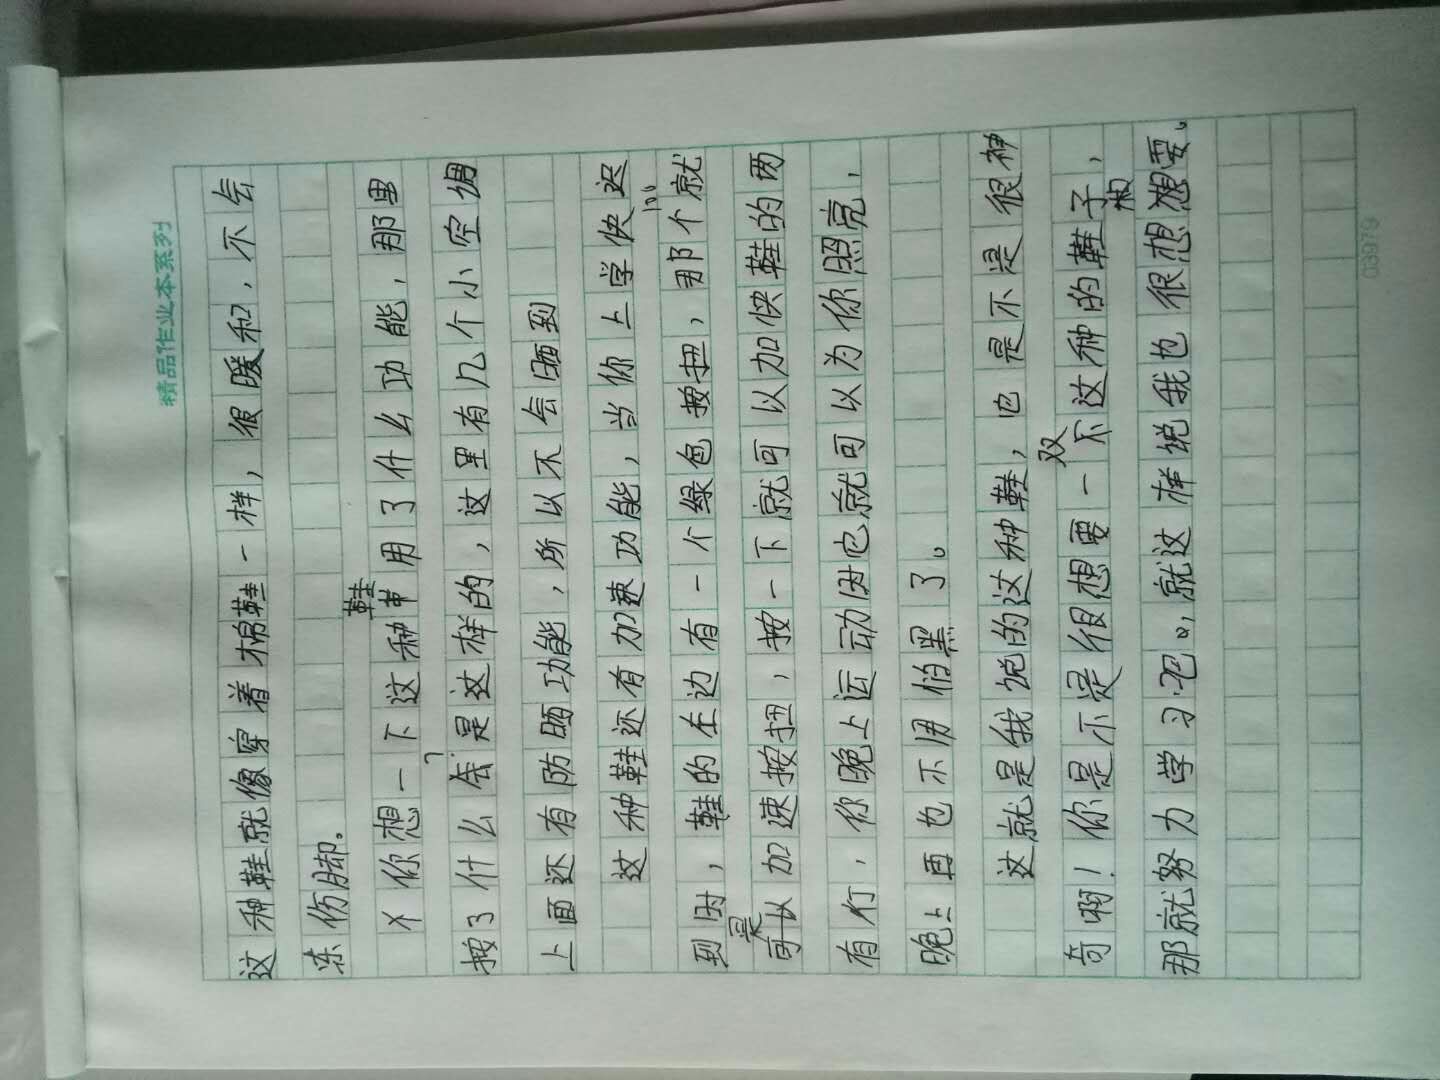 精品作业本系列
这种鞋就像穿着棉鞋一样，很暖和，不会
冻伤脚。
你想一下这种鞋用了什么功能，那里
按了什么？会是这样的，这里有几个小空调
上面还有防晒功能，所以不会晒到
这种鞋还有加速功能，当你上学快迟
到时，鞋的左边有一个绿色按扭，那个就
是加速按扭，按一下就可以加快鞋的两
有灯，你晚上运动时它就可以为你照亮，
晚上再也不用怕黑了。
这就是我说的这种鞋，也是不是很神
奇啊！你是不是很想要一双这种的鞋子，
那就努力学习吧。，就这样说我也很想想要。
03979